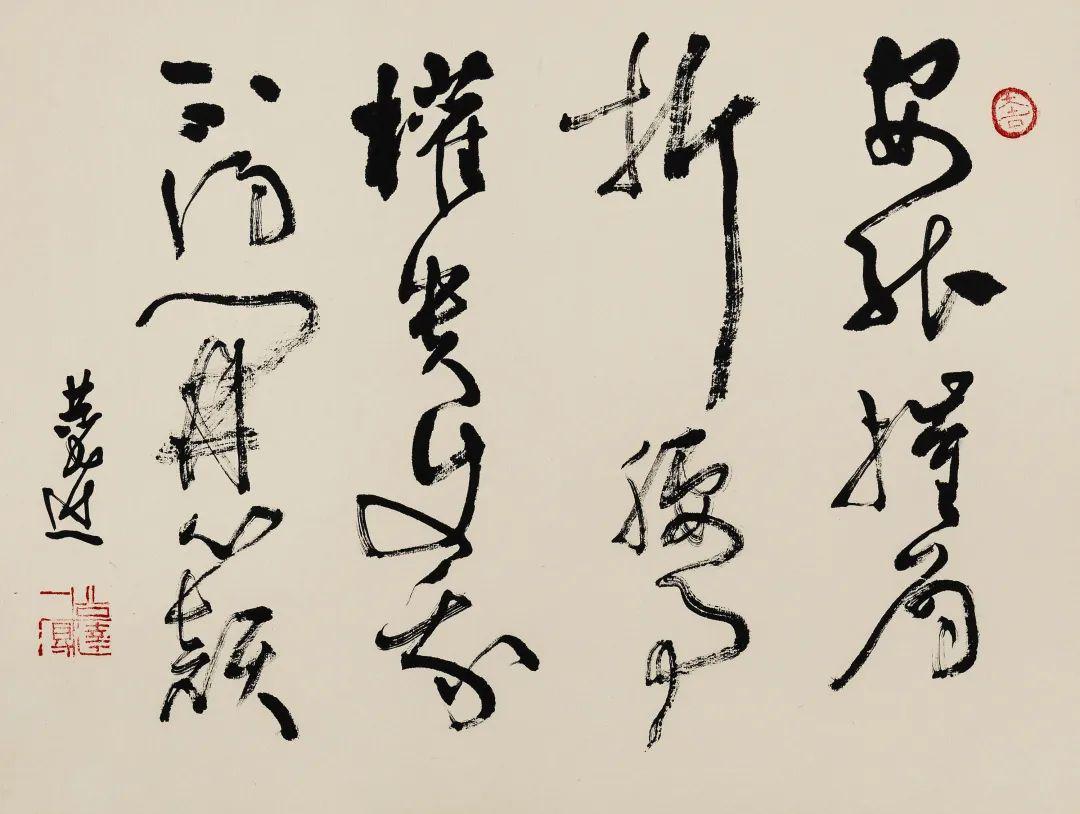 大吉
安能摧眉
折腰事
權貴使我
不得開心顏